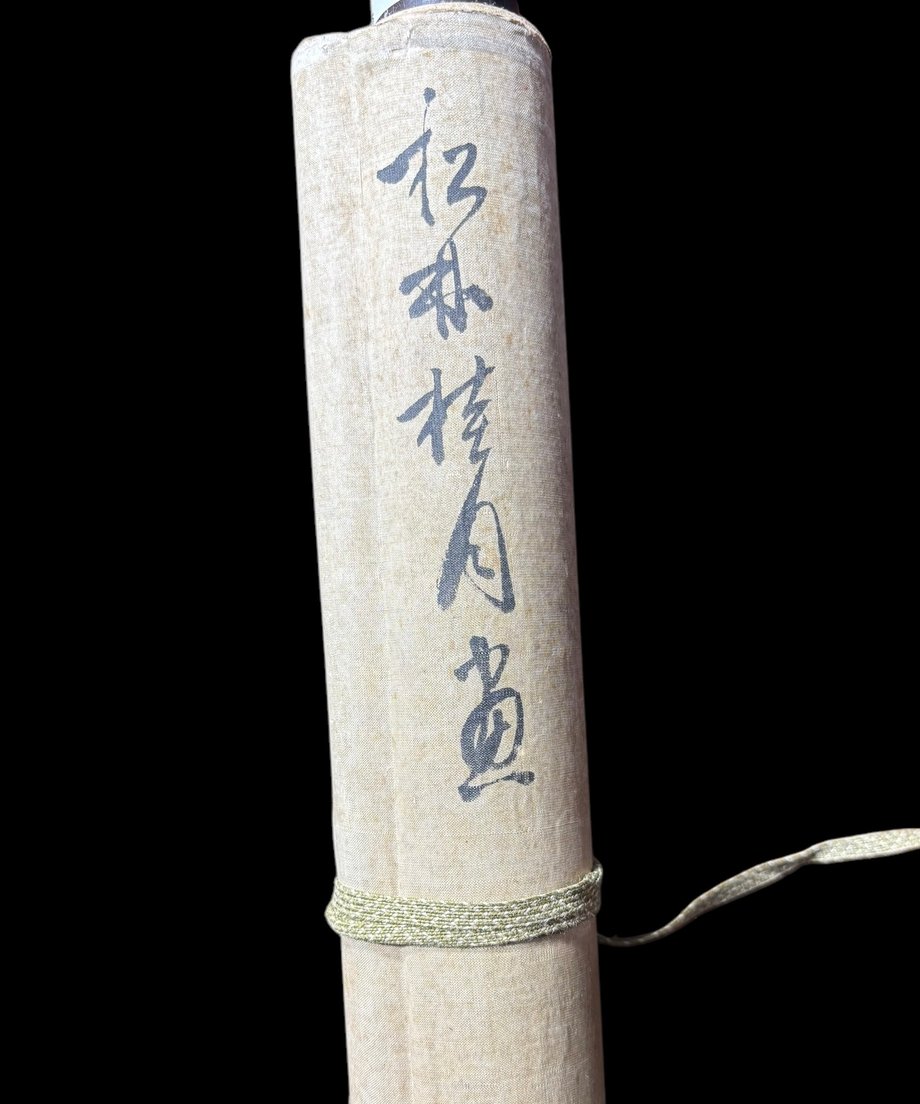 松林桂月畫